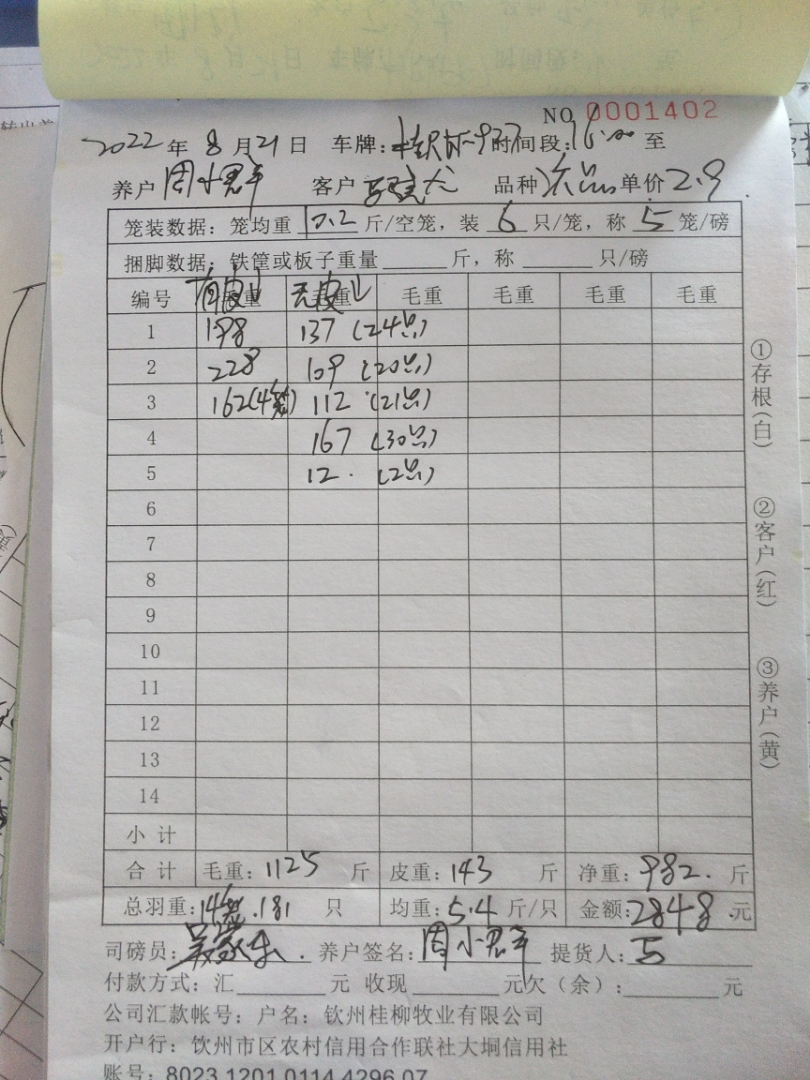 NO 0001402
2022 年 8 月 21 日 车牌: 时间段: 16:00 至
养户 周小 客户 品种 单价 2.9
笼装数据: 笼均重 10.2 斤/空笼, 装 6 只/笼, 称 5 笼/磅
捆脚数据: 铁筐或板子重量 斤, 称 只/磅
编号 有皮 毛重 无皮 毛重 毛重 毛重 毛重 毛重
1 198 137 (24只)
2 228 109 (20只)
3 162 (4笼) 112 (21只)
4 167 (30只)
5 12. (2只)
6
7
8
9
10
11
12
13
14
小计
合计 毛重: 1125 斤 皮重: 143 斤 净重: 982. 斤
总羽重: 14笼.181 只 均重: 5.4 斤/只 金额: 2848. 元
司磅员: 养户签名: 周小 提货人:
付款方式: 汇 元 收现 元 欠(余): 元
公司汇款帐号: 户名: 钦州桂柳牧业有限公司
开户行: 钦州市区农村信用合作联社大垌信用社
账号: 8023 1201 0114 4296 07
①存根(白)
②客户(红)
③养户(黄)